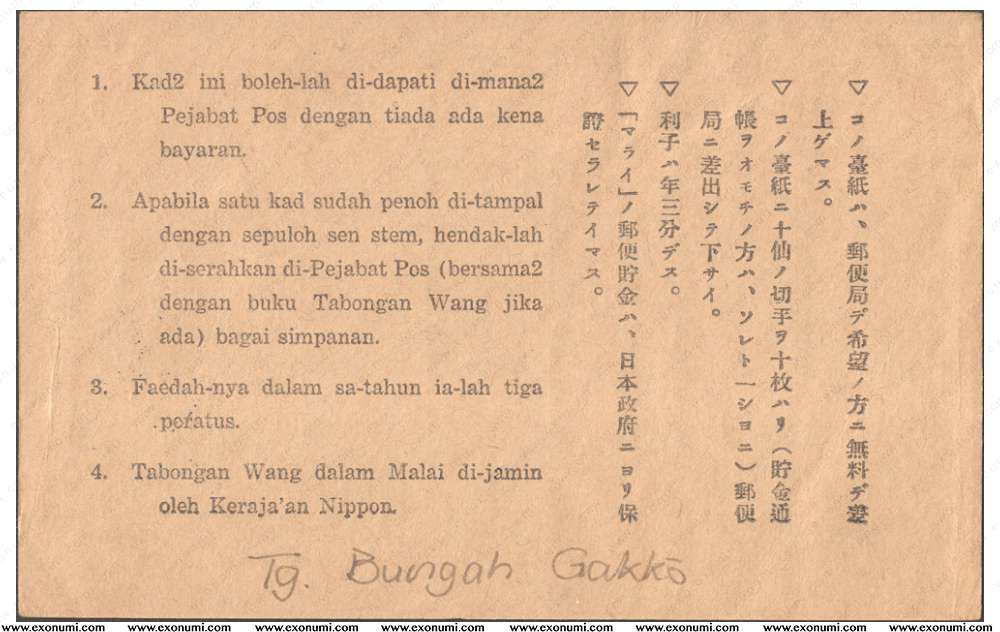 1. Kad2 ini boleh-lah di-dapati di-mana2
Pejabat Pos dengan tiada ada kena
bayaran.
2. Apabila satu kad sudah penoh di-tampal
dengan sepuloh sen stem, hendak-lah
di-serahkan di-Pejabat Pos (bersama2
dengan buku Tabongan Wang jika
ada) bagai simpanan.
3. Faedah-nya dalam sa-tahun ia-lah tiga
poratus.
4. Tabongan Wang dalam Malai di-jamin
oleh Keraja'an Nippon.
▽ コノ臺紙ハ、郵便局デ希望ノ方ニ無料デ差
上ゲマス。
▽ コノ臺紙ニ十仙ノ切手ヲ十枚ハリ(貯金通
帳ヲオモチノ方ハ、ソレト一シヨニ)郵便
局ニ差出シテ下サイ。
▽ 利子ハ年三分デス。
▽ 「マライ」ノ郵便貯金ハ、日本政府ニヨリ保
證セラレテイマス。
Tg. Bungah Gakkō
www.exonumi.com www.exonumi.com www.exonumi.com www.exonumi.com www.exonumi.com www.exonumi.com www.exonumi.com www.exonumi.com